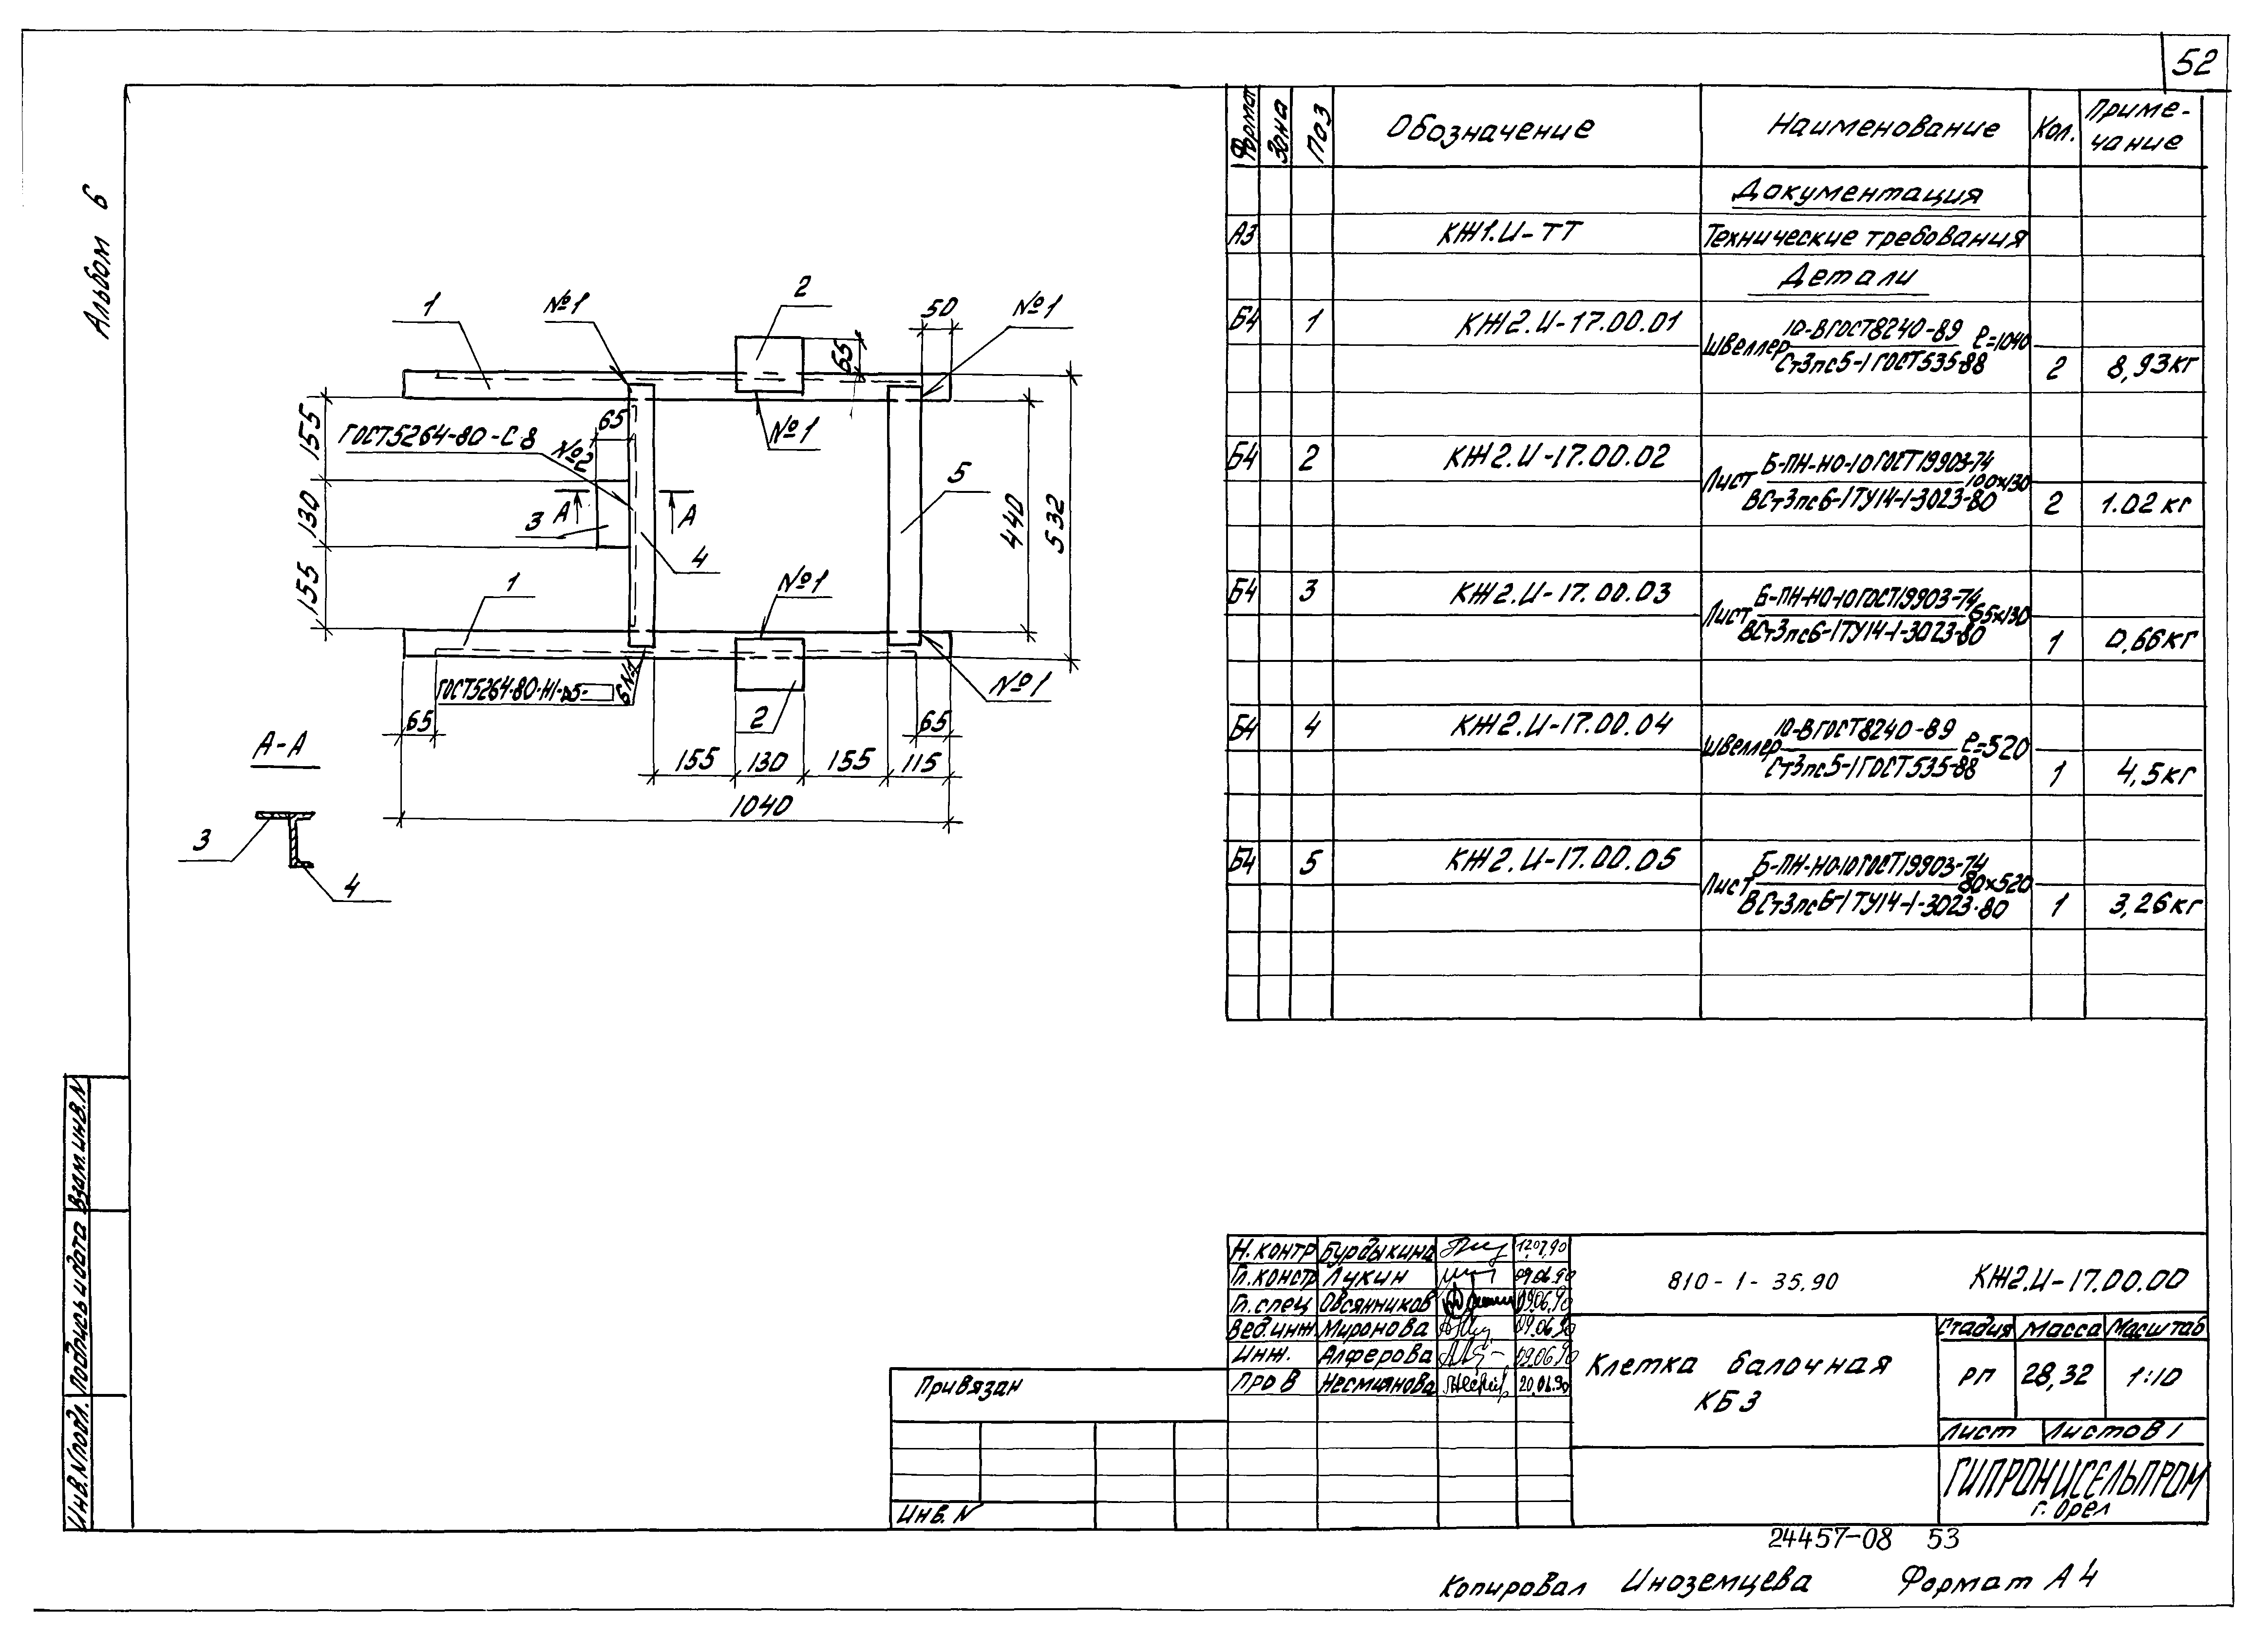 52
Альбом 6
Формат Зона Поз Обозначение Наименование Кол. Приме-чание
Документация
А3 КЖ1.И-ТТ Технические требования
Детали
Б4 1 КЖ2.И-17.00.01 Швеллер 10-В ГОСТ8240-89 ℓ=1040
Ст3пс5-1 ГОСТ535-88 2 8,93кг
Б4 2 КЖ2.И-17.00.02 Лист Б-ПН-НО-10 ГОСТ19903-74 100х130
ВСт3пс6-1 ТУ14-1-3023-80 2 1.02 кг
Б4 3 КЖ2.И-17.00.03 Лист Б-ПН-НО-10 ГОСТ19903-74 65х130
ВСт3пс6-1 ТУ14-1-3023-80 1 0,66кг
Б4 4 КЖ2.И-17.00.04 Швеллер 10-В ГОСТ8240-89 ℓ=520
Ст3пс5-1 ГОСТ535-88 1 4,5кг
Б4 5 КЖ2.И-17.00.05 Лист Б-ПН-НО-10 ГОСТ19903-74 80х520
ВСт3пс6-1 ТУ14-1-3023-80 1 3,26кг
1
№1
2
50
№1
65
155
65
№1
ГОСТ5264-80-С8
№2
5
130
А А
3
4
440
532
155
1
№1
ГОСТ5264-80-Н1-⊿5-
6 №1
№1
65
2
65
155 130 155 115
1040
А-А
3
4
Взам.инв.N
Подпись и дата
Инв.Nподл.
Привязан
Инв. N
Н.контр Бурдыкина 12.07.90
Гл.констр Лукин 09.06.90
Гл.спец Овсянников 09.06.90
Вед.инж Миронова 09.06.90
Инж. Алферова 09.06.90
Пров Несмиянова 20.06.90
810-1-35.90 КЖ2.И-17.00.00
Клетка балочная
КБ3
Стадия Масса Масштаб
РП 28,32 1:10
Лист Листов 1
ГИПРОНИСЕЛЬПРОМ
г. Орел
24457-08 53
Копировал Иноземцева Формат А4